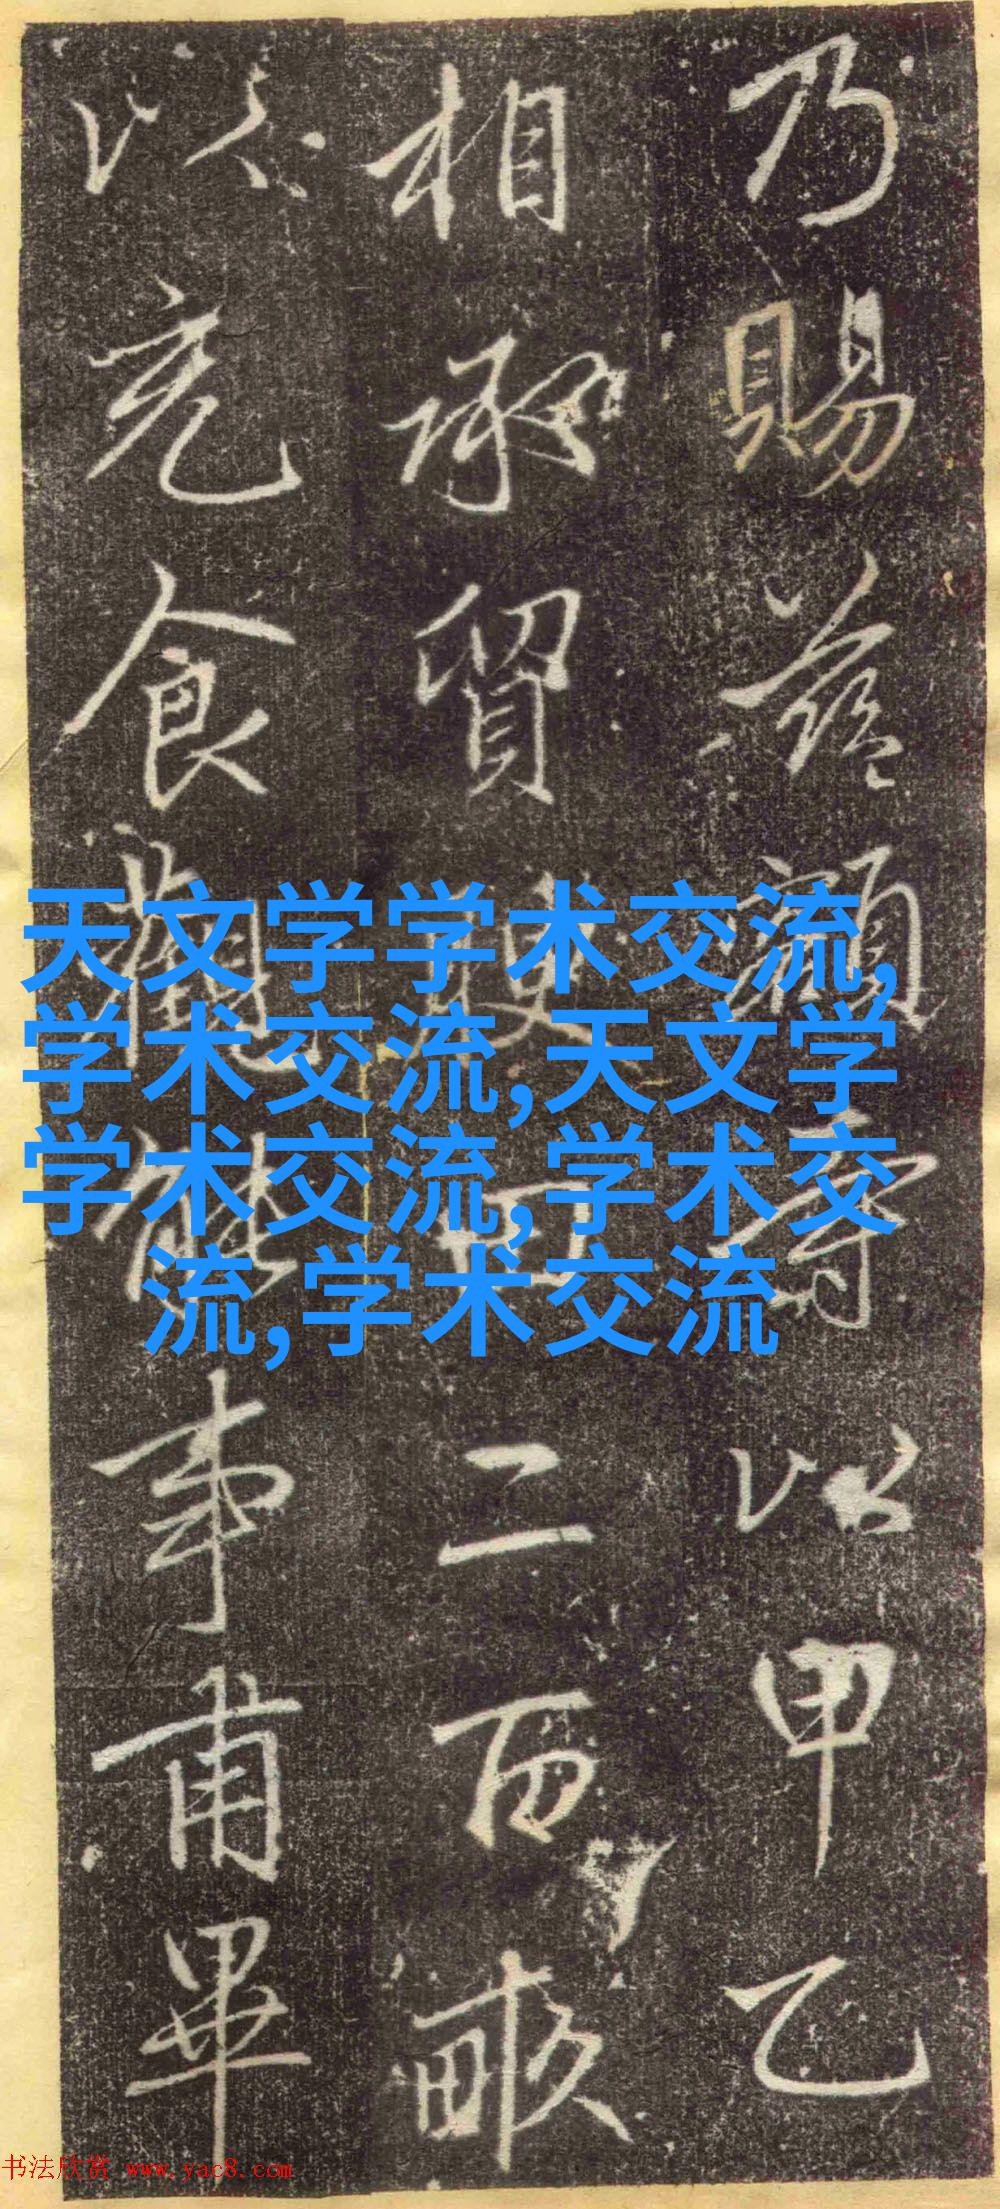 乃賜茲額
以甲乙
相承貿
二百畝
以充食
事甫畢
天文学学术交流,
学术交流,天文学
学术交流,学术交
流,学术交流
书法欣赏 www.yac8.com